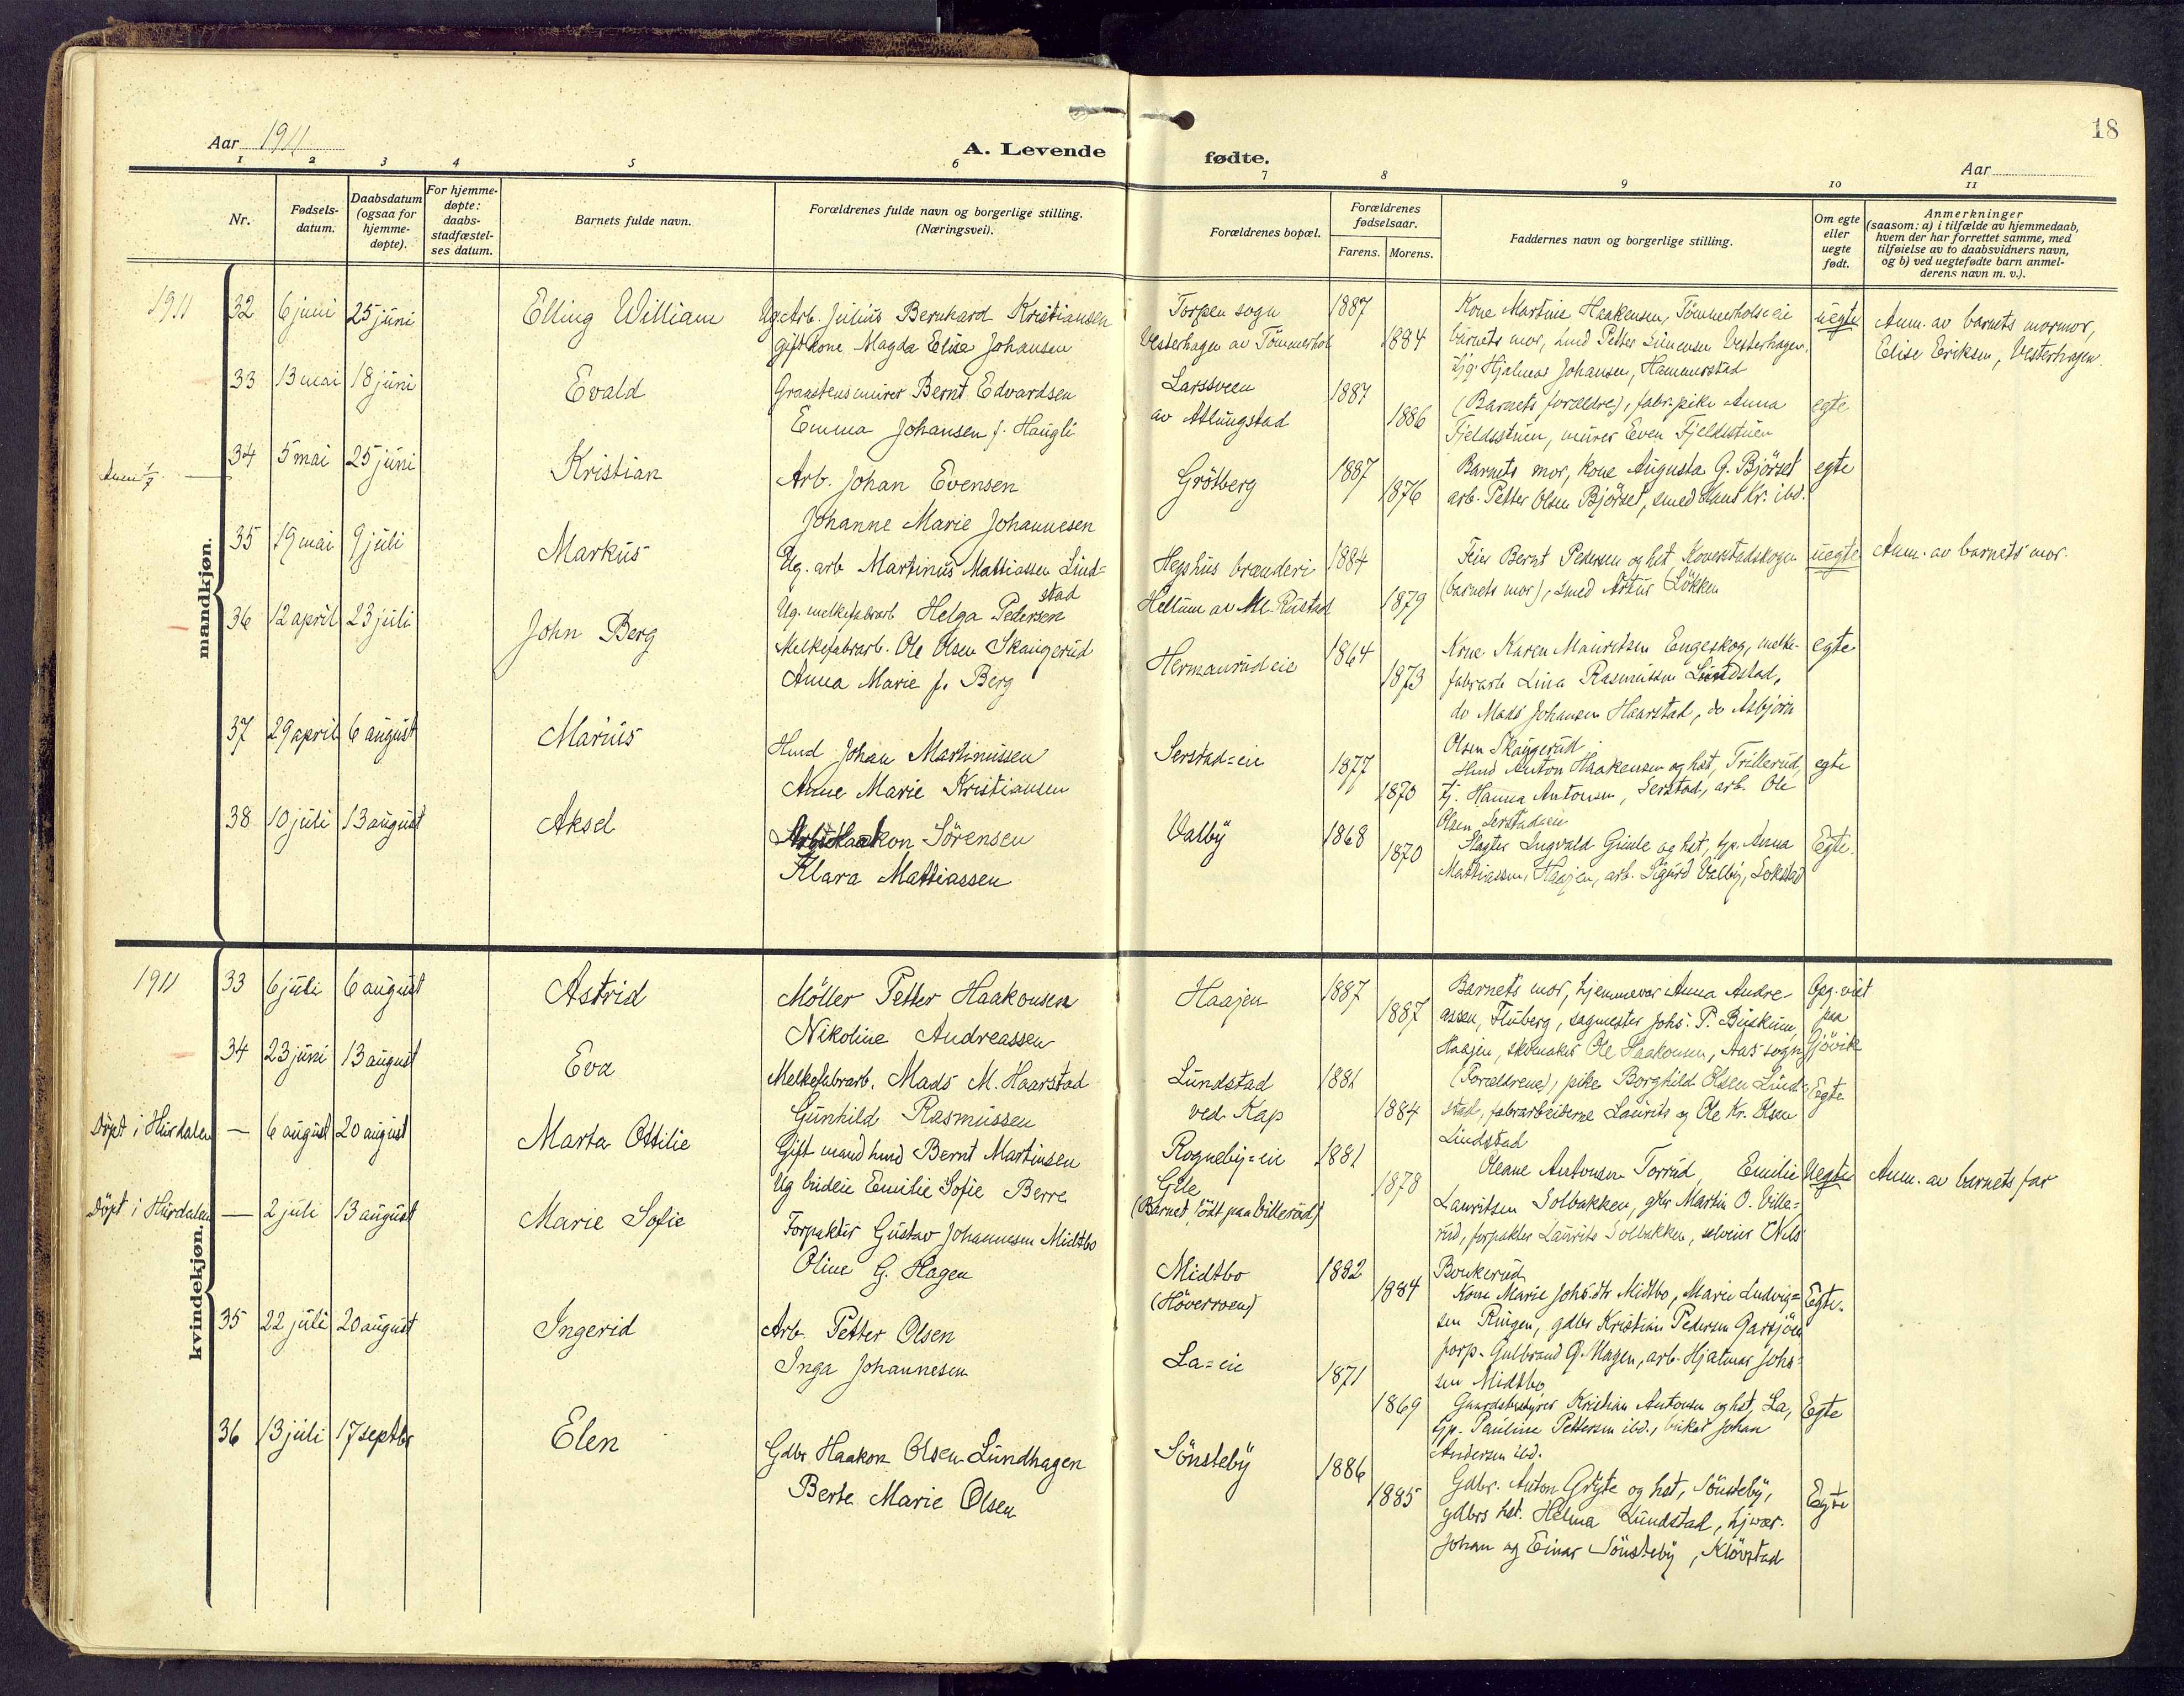 18
Aar 1911
A. Levende fødte.
Aar
1 2 3 4 5 6 7 8 9 10 11
Nr.
Fødsels-
datum.
Daabsdatum
(ogsaa for
hjemme-
døpte).
For hjemme-
døpte:
daabs-
stadfæstel-
ses datum.
Barnets fulde navn.
Forældrenes fulde navn og borgerlige stilling.
(Næringsvei).
Forældrenes bopæl.
Forældrenes
fødselsaar.
Farens. Morens.
Faddernes navn og borgerlige stilling.
Om egte
eller
uegte
født.
Anmerkninger
(saasom: a) i tilfælde av hjemmedaab,
hvem der har forrettet samme, med
tilføielse av to daabsvidners navn,
og b) ved uegtefødte barn anmel-
derens navn m. v.).
mandkjøn.
1911 32 6 juni 25 juni Elling William
Ug. Arb. Julius Bernhard Kristiansen
Gift kone Magda Elise Johansen
Torpen sogn
Vesterhagen av Tömmerhol
1887 1884
Kone Martine Haakensen, Tömmerholseie
barnets mor, hmd Petter Simensen Vesterhagen,
Hjalmar Johansen, Hammerstad
uegte
Anm. av barnets mormor,
Elise Eriksen, Vesterhagen.
33 13 mai 18 juni Evald
Graastensmurer Bernt Edvardsen
Emma Johansen f. Haugli
Larssveen
av Atlungstad
1887 1886
(Barnets forældre), fabr. pike Anna
Fjeldsstuen, murer Even Fjeldsstuen
egte
34 5 mai 25 juni Kristian
Arb. Johan Evensen
Johanne Marie Johannesen
Grötberg
1887 1876
Barnets mor, kone Augusta G. Björset
arb. Petter Olsen Björset, smed Hans Kr. ibd.
egte
35 19 mai 9 juli Markus
Ug. arb Martinus Mattiassen Lind=
stad
Ug. melkefabrarb Helga Pedersen
Hegshus brænderi
Hellum av Ml. Rustad
1884 1879
Feier Bernt Pedersen og hst, Koverstadskogen
(barnets mor), smed Artur Løkken
uegte
Anm. av barnets mor.
36 12 april 23 juli John Berg
Melkefabrarb. Ole Olsen Skaugerud
Anna Marie f. Berg
Hermanrud eie
1864 1873
Kone Karen Mauritsen Engeskog, melke-
fabrarb Lina Rasmussen Lundstad,
do Mads Johansen Haarstad, do Asbjörn
Olsen Skaugerud
egte
37 29 april 6 august Marius
Hmd Johan Martinussen
Anne Marie Kristiansen
Serstad=eie
1877 1870
Hmd Anton Haakensen og hst, Trillerud,
tj. Hanna Antonsen, Serstad, arb. Ole
Olsen Serstadeie
egte
38 10 juli 13 august Aksel
Arb Haakon Sörensen
Klara Mattiassen
Valby
1868 1870
Slagter Ingvald Gimle og hst, tjp. Anna
Mattiassen, Haajen, arb. Sigurd Valby, Sokstad
Egte.
kvindekjøn.
1911 33 6 juli 6 august Astrid
Möller Petter Haakonsen
Nikoline Andreassen
Haajen
1887 1887
Barnets mor, hjemmevær Anna Andre-
assen, Fluberg, sagmester Johs. P. Buskum,
Haajen, skomaker Ole Haakonsen, Aas sogn
Bg. viet
paa
Gjövik
34 23 juni 13 august Eva
Melkefabrarb. Mads M. Haarstad
Gunhild Rasmussen
Lundstad
ved Kap
1881 1884
(Forældrene), pike Borghild Olsen Lind-
stad, fabrarbeiderne Laurits og Ole Kr. Olsen
Lindstad
Egte
Döpt i Hurdalen — 6 august 20 august Marta Ottilie
Gift mand hmd Bernt Martinsen
Ug budeie Emilie Sofie Berre
Rogneby=eie
Gile
(Barnet födt paa Villerud)
1881 1878
Oleane Antonsen Torrud, Emilie
Lauritsen Solbakken, gbr Martin O. Ville=
rud, forpakter Laurits Solbakken, selveier Nils
Bonkerud
Uegte
Anm. av barnets far
Döpt i Hurdalen — 2 juli 13 august Marie Sofie
Forpakter Gustav Johannesen Midtbo
Oline G. Hagen
Midtbo
(Höversoen)
1882 1884
Kone Marie Johs.dtr Midtbo, Marie Ludvig=
sen Ringen, gdbr Kristian Pedersen Garsjöen
forp. Gulbrand G. Hagen, arb. Hjalmar Johs=
sen Midtbo
Egte.
35 22 juli 20 august Ingerid
Arb. Petter Olsen
Inga Johannesen
La=eie
1871 1869
Gaardsbestyrer Kristian Antonsen og hst, La,
tjp. Pauline Pettersen ibd., Johan
Andersen ibd.
Egte
36 13 juli 17 septbr Elen
Gdbr. Haakon Olsen Lundhagen
Berte Marie Olsen
Sönsteby
1886 1885
Gdbr. Anton Gryte og hst, Sönsteby,
gdbrs hst. Helma Lundstad, hjvær.
Johan og Einar Sönsteby, Klövstad
Egte